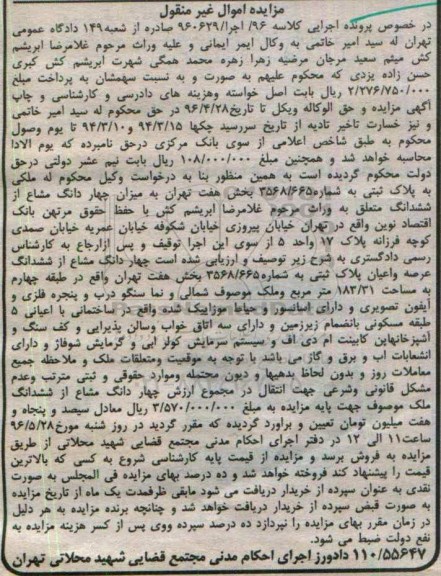 مزایده اموال غیر منقول
در خصوص پرونده اجرایی کلاسه ۹۶/ اجرا/۹۶۰۶۲۹ صادره از شعبه ۱۴۹ دادگاه عمومی
تهران له سید امیر خاتمی به وکال ایمر ایمانی و علیه وراث مرحوم غلامرضا ابریشم
کش میثم سعید مرجان مرضیه زهرا زهره محمد همگی شهرت ابریشم کش کبری
حسن زاده یزدی که محکوم علیهم به صورت و به نسبت سهمشان به پرداخت مبلغ
۲/۲۷۶/۷۵۰/۰۰۰ ریال بابت اصل خواسته وهزینه های دادرسی و کارشناسی و چاپ
آگهی مزایده و حق الوکاله ویکل تا تاریخ ۹۶/۴/۲۸ در حق محکوم له سید امیر خاتمی
و نیز خسارت تاخیر تادیه از تاریخ سررسید چکها ۹۴/۳/۱۵ و ۹۴/۳/۱۰ تا یوم وصول
محکوم به طبق شاخص اعلامی از سوی بانک مرکزی درحق نامبرده که یوم الادا
محاسبه خواهد شد و همچنین مبلغ ۱۰۸/۰۰۰/۰۰۰ ریال بابت نیم عشر دولتی درحق
دولت محکوم گردیده است به همین منظور بنا به درخواست وکیل محکوم له ملکی
به پلاک ثبتی به شماره ۳۵۶۸/۶۶۵ بخش هفت تهران به میزان چهار دانگ مشاع از
ششدانگ متعلق به وراث مرحوم غلامرضا ابریشم کش با حفظ حقوق مرتهن بانک
اقتصاد نوین واقع در تهران خیابان پیروزی خیابان شکوفه خیابان عمریه خیابان صمدی
کوچه فرزانه پلاک ۱۷ واحد ۵ از سوی این اجرا توقیف و پس ازارجاع به کارشناس
رسمی دادگستری به شرح زیر توصیف و ارزیابی شده است چهار دانگ مشاع از ششدانگ
عرصه واعیان پلاک ثبتی به شماره ۳۵۶۸/۶۶۵ بخش هفت تهران واقع در طبقه چهارم
به مساحت ۱۸۳/۳۱ متر مربع وملک موصوف شمالی و نما سنگو درب و پنجره فلزی و
آیفون تصویری و دارای آسانسور و حیاط موزاییک شده واقع در ساختمانی با اعیانی ۵
طبقه مسکونی بانضمام زیرزمین و دارای سه اتاق خواب وسالن پذیرایی و کف سنگ و
آشپزخانهاین کابینت ام دی اف و سیستم سرمایش کولر ابی و گرمایش شوفاژ و دارای
انشعابات اب و برق و گاز می باشد با توجه به موقعیت ومتعلقات ملک و ملاحظه جمیع
معاملات روز و بدون لحاظ بدهیها و دیون محتمله وموارد حقوقی و ثبتی مترتب وعدم
مشکل قانونی وشرعی جهت انتقال در مجموع ارزش چهار دانگ مشاع از ششدانگ
ملک موصوف جهت پایه مزایده به مبلغ ۳/۵۷۰/۰۰۰/۰۰۰ ریال معادل سیصد و پنجاه و
هفت میلیون تومان تعیین و براورد گردیده که مقرر گردید در روز شنبه مورخ ۹۶/۵/۲۸
ساعت ۱۱ الی ۱۲ در دفتر اجرای احکام مدنی مجتمع قضایی شهید محلاتی از طریق
مزایده به فروش برسد و مزایده از قیمت پایه کارشناسی شروع به کسی که بالاترین
قیمت را پیشنهاد کند فروخته خواهد شد و ده درصد بهای مزایده فی المجلس به صورت
نقدی به عنوان سپرده از خریدار دریافت می شود مابقی ظرفمدت یک ماه از تاریخ مزایده
به صورت قبض سپرده از خریدار دریافت خواهد شد و چنانچه برنده مزایده به هر دلیل
در زمان مقرر بهای مزایده را نپردازد ده درصد سپرده ووی پس از کسر هزینه مزایده به
نفع دولت ضبط می شود.
۱۱۰/۵۵۶۴۷ دادورز اجرای احکام مدنی مجتمع قضایی شهید محلاتی تهران